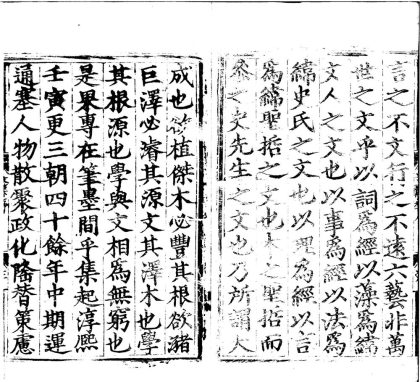 言之不文行之不遠六藝非萬
世之文乎以詞為經以藻為緯
文人之文也以事為經以法為
緯史氏之文也以理為經以言
為緯聖哲之文也本之聖哲而
參之史先生之文也乃所謂大
成也欲植傑木必豐其根欲豬
巨澤必濬其源文其澤木也學
其根源也學與文相為無窮也
是果專在筆墨間乎集起淳熙
壬寅更三朝四十餘年中期運
通塞人物散聚政化隆替策慮